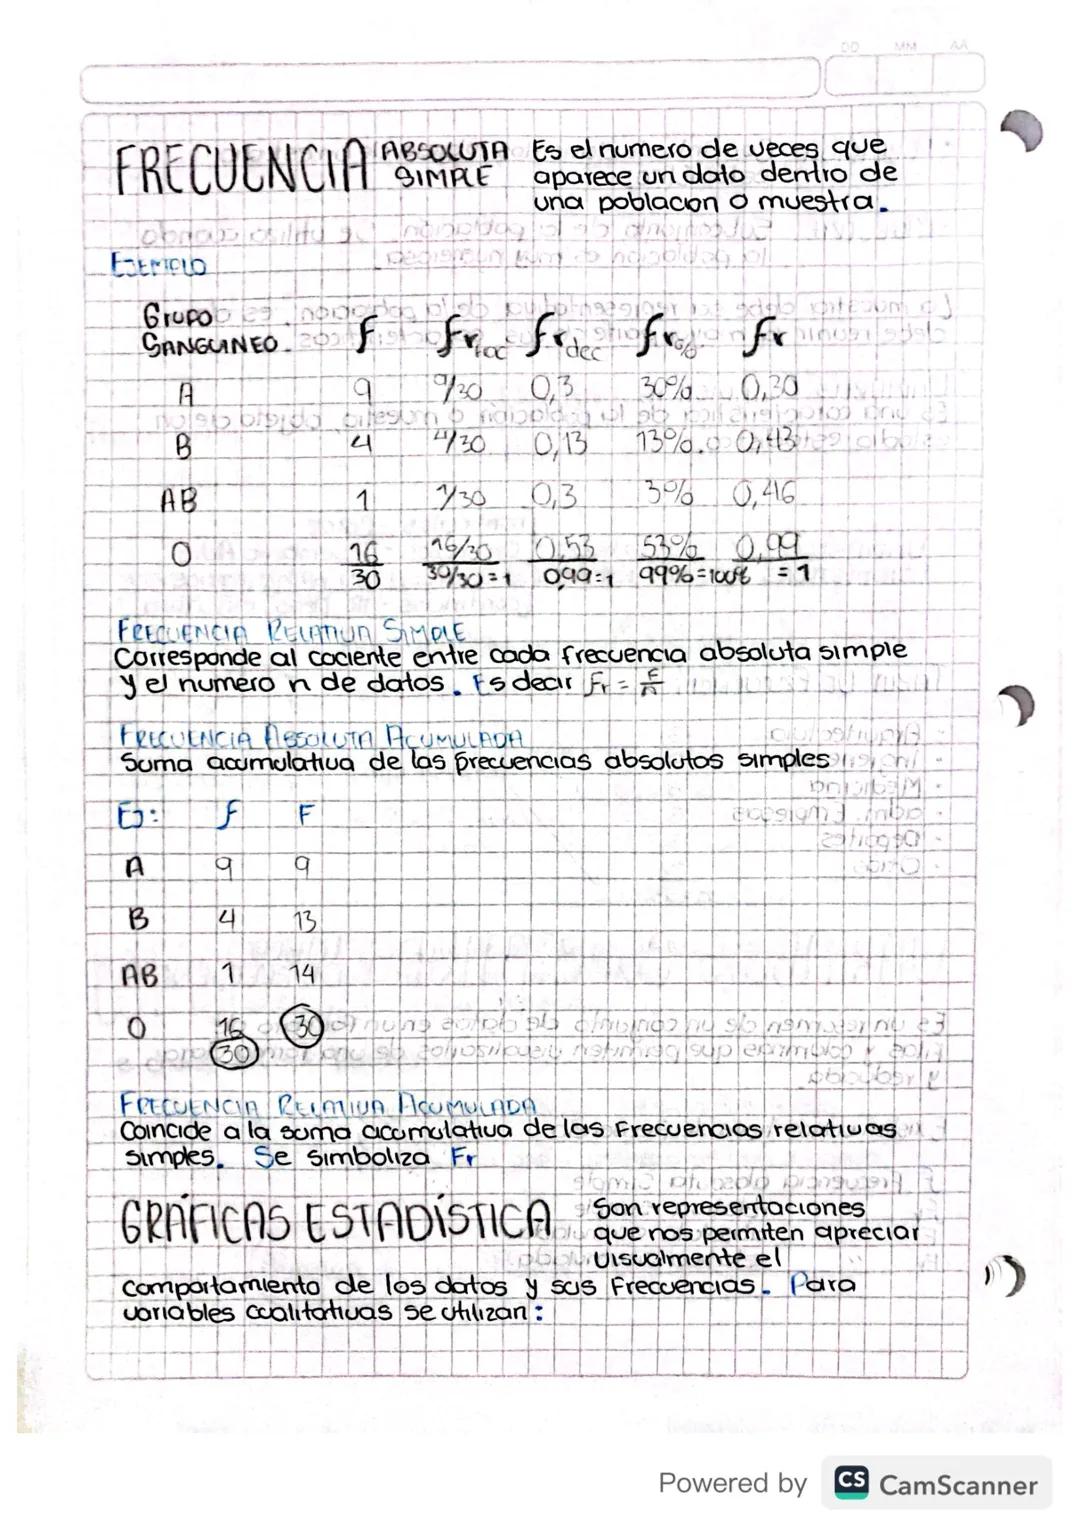 DD MM AA
FRECUENCIA ABSOLUTA SIMPLE Es el numero de veces que
aparece un dato dentro de
una poblacion o muestra.
EJEMPLO
GRUPO
SANGUINEO. f fr frac fr dec fr % fr
A 9 9/30 0,3 30% 0,30
B 4 4/30 0,13 13% 0,43
AB 1 1/30 0,3 3% 0,46
O 16 16/30 0,53 53% 0,99
30 30/30=1 0,99=1 99%=100% =1
FRECUENCIA RELATIVA SIMPLE
Corresponde al cociente entre cada frecuencia absoluta simple
y el numero n de datos. Es decir Fr = F/n
FRECUENCIA ABSOLUTA ACUMULADA
Suma acumulativa de las frecuencias absolutas simples
EJ: f F
A 9 9
B 4 13
AB 1 14
O 16 30
30
FRECUENCIA RELATIVA ACUMULADA
Coincide a la suma acumulativa de las Frecuencias relativas
simples. Se simboliza Fr
GRÁFICAS ESTADÍSTICA Son representaciones
que nos permiten apreciar
visualmente el
comportamiento de los datos y sus Frecuencias. Para
variables cualitativas se utilizan:
Powered by CS CamScanner